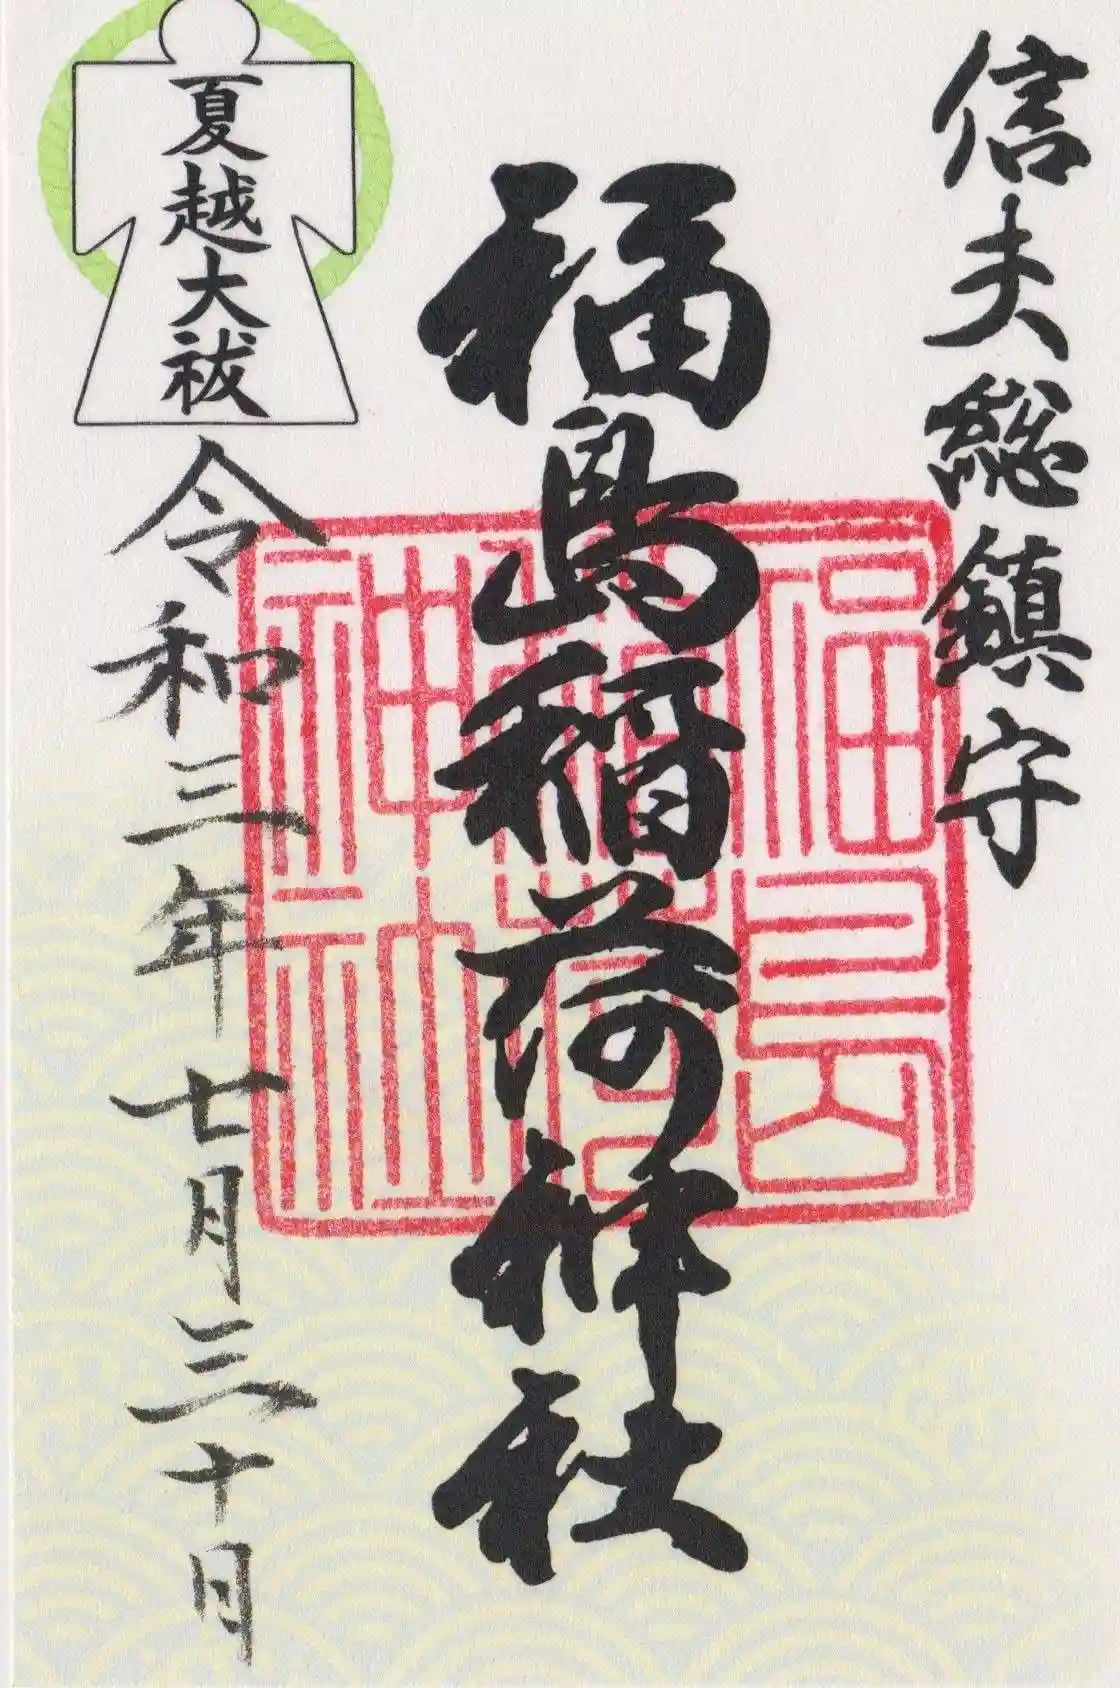 信夫総鎮守
福島稲荷神社
福島稲荷神社
夏越大祓
令和三年七月三十日